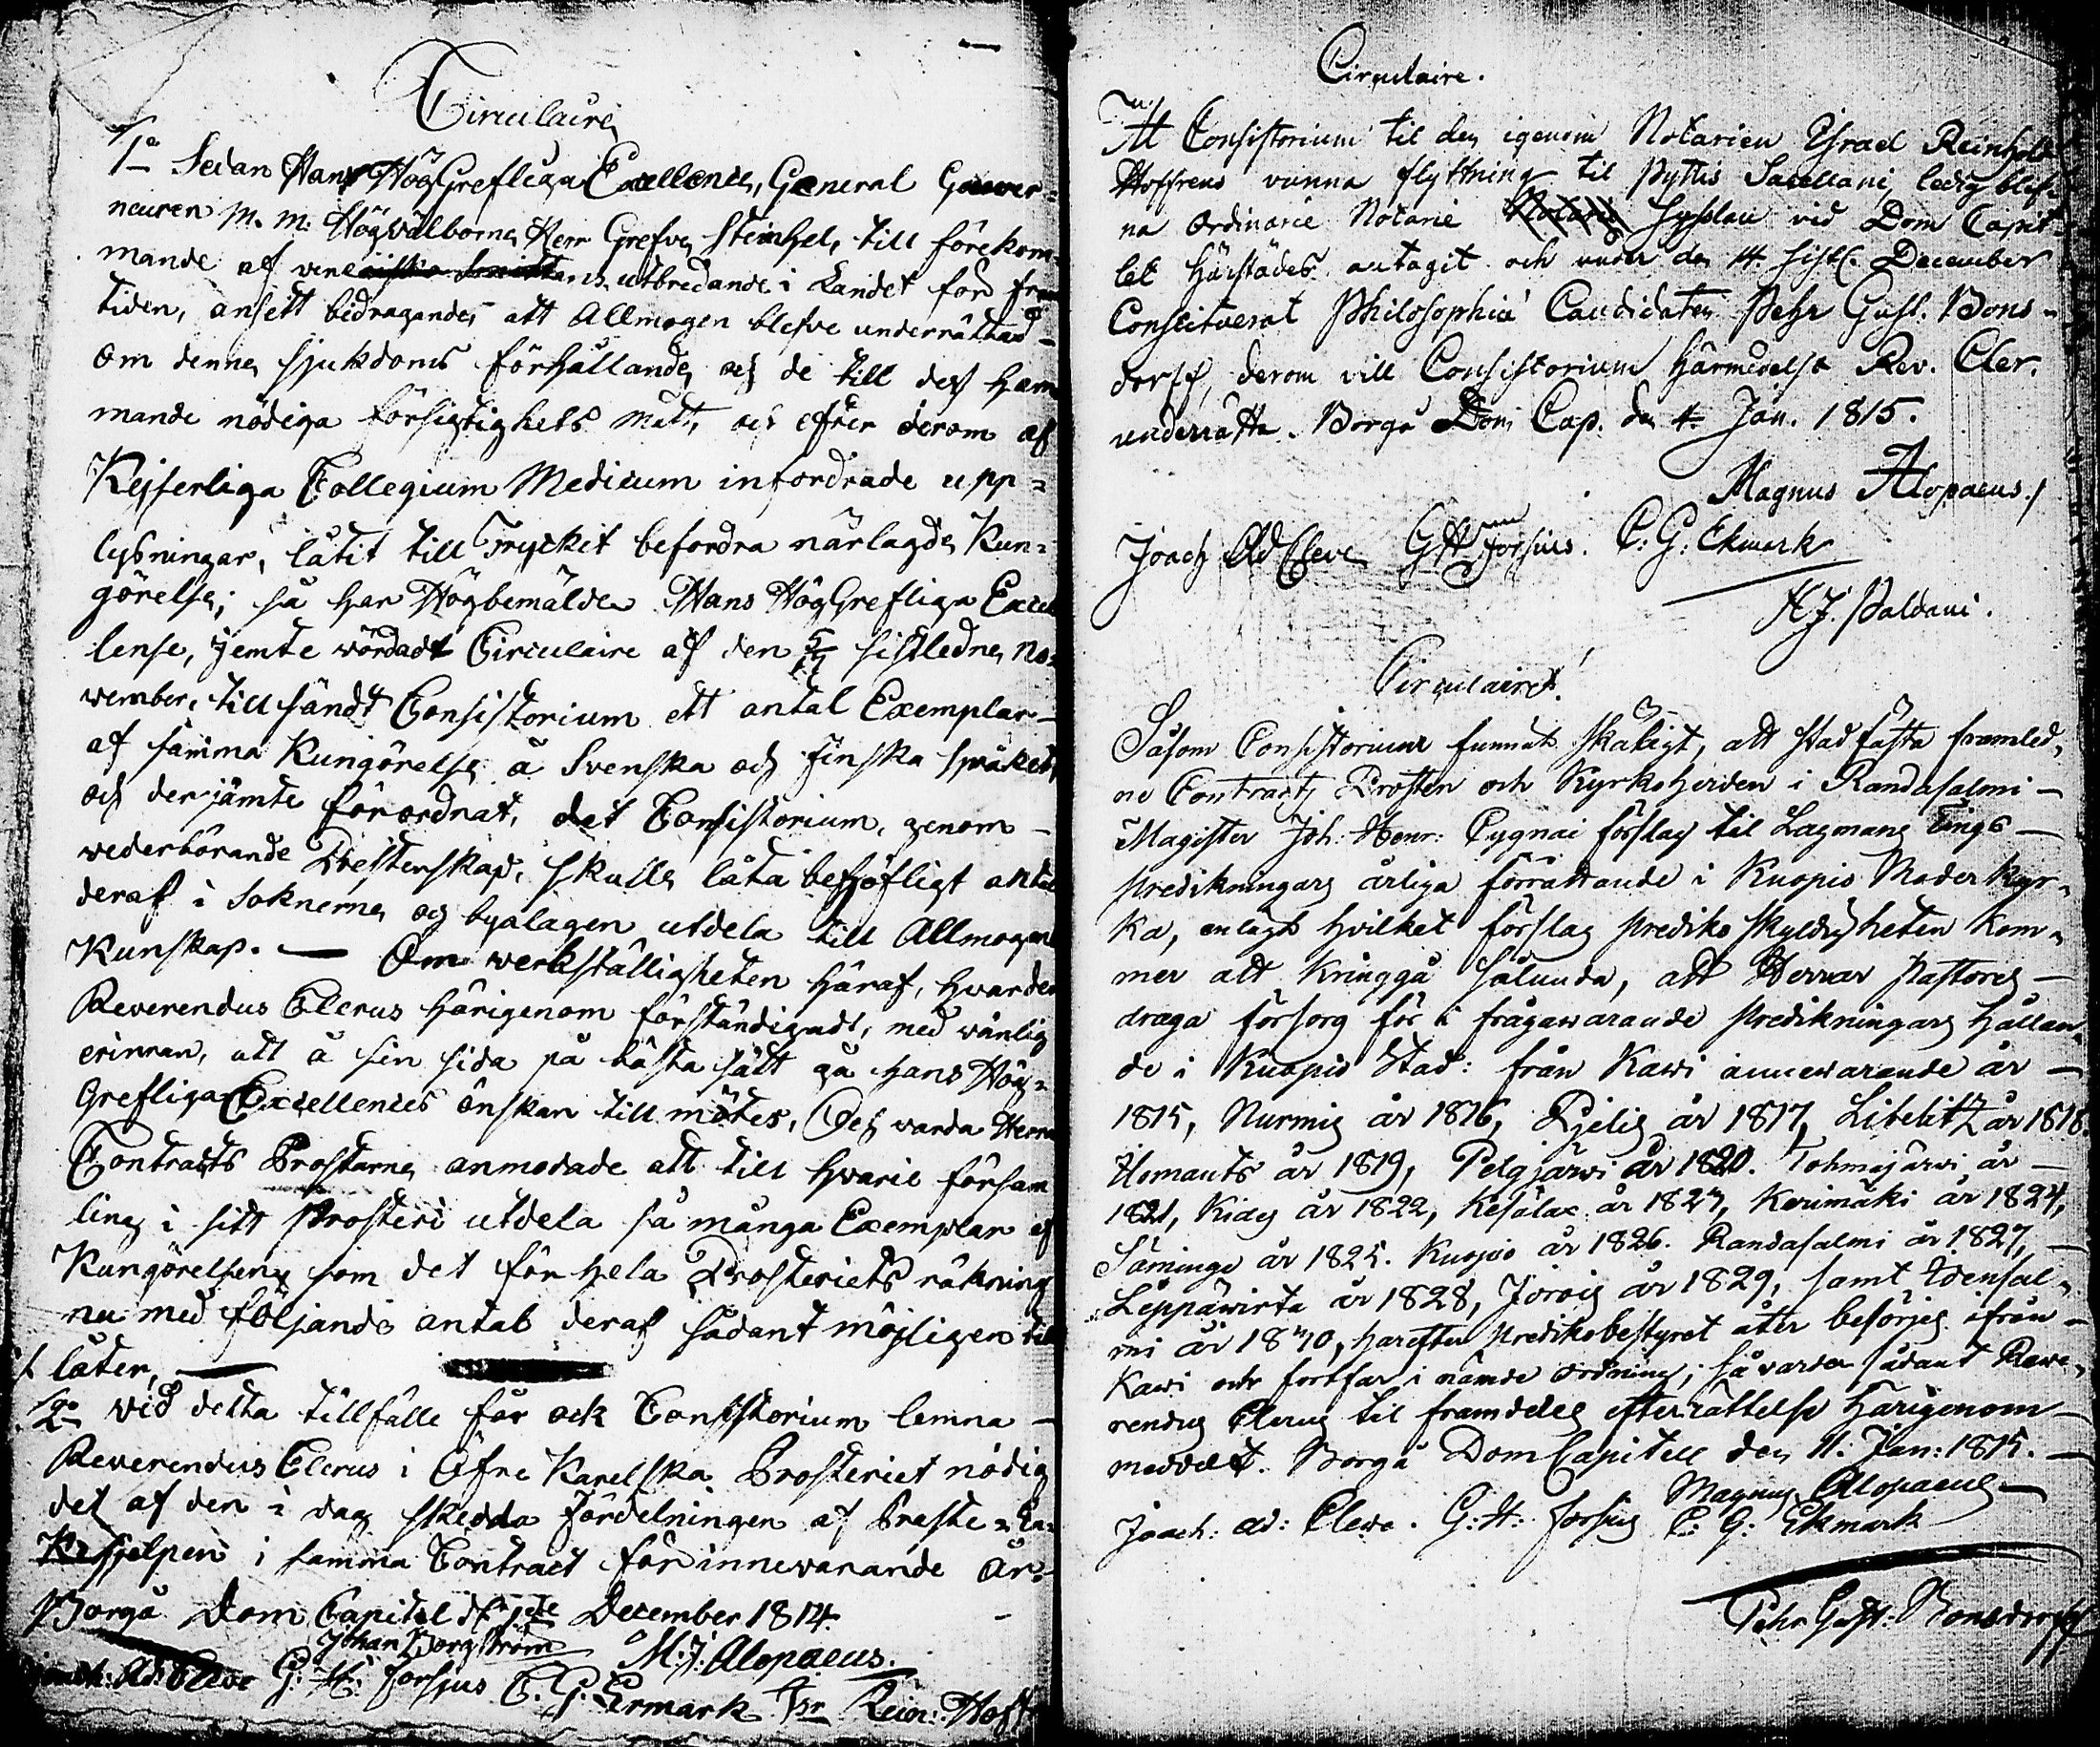 Circulaire
1o Sedan Hans HögGrefliga Excellence, General Gouver=
neuren m. m. Högvälborne Herr Grefve Steinhel, till förekom=
mande af utbredande i Landet för fram
tiden, ansett bidragande, att Allmogen blefve underrättad
om denne sjukdoms förhållande, och de till dess häm
mande nödiga försigtighets mått, och efter derom af
Kejserliga Collegium Medicum infordrade upp=
lysningar, låtit till Trycket befordra närlagde Kun=
görelse; så har Högbemälde Hans HögGrefliga Excel
lense, jemte wördadt Circulaire af den sistledne No=
vember, tillsändt Consistorium ett antal Exemplar
af samma Kungörelse å Svenska och Finska språket,
och derjämte förordnat, det Consistorium, genom
wederbörande Presterskap, skulle låta behöfligt antal
deraf i Soknerne och byalagen utdela till Allmogens
Kunskap. — Om werkställigheten häraf, hvarder
Reverendus Clerus härigenom förständigadt, med wänlig
erinran, att å sin sida på bästa sätt gå Hans Hög=
Grefliga Excellences önskan till mötes, Och warda Herrar
Contracts Prostarne anmodade att till hvarje försam
ling i sitt Prosteri utdela så många Exemplar af
Kungörelsen, som det för hela Prosteriets räkning
nu med följande antal deraf sådant möjligen till
låter, —
2o Vid detta tillfälle får ock Consistorium lemna —
Reverendus Clerus i Öfre Karelska Prosteriet nödig
del af den i dag skedda Fördelningen af Preste=En=
Kehjelpen i samma Contract för innevarande år.
Borgå Dom Capitel d. 7de December 1814.
Johan Borgström M: J: Alopaeus.
Joach: Ad: Cleve G: H: Forsius C. G. Ekmark Isr Rein: Hoff
Circulaire.
At Consistorium til den igenom Notarien Israel Reinhold
Hoffrens vunna flyttning til Pyttis Sacellani, ledig blef=
na Ordinarie Notarie Notarie Sysslan vid Dom Capit=
let härstädes antagit och under den 14. sistl. December
Constituerat Philosophiæ Candidaten Pehr Gust. Bons=
dorff, derom vill Consistorium härmedelst Rev. Cler.
underrätta. Borgå Dom Cap. den 4 Jan. 1815.
Magnus Alopaeus./
Joach Ad Cleve GH Forsius. C: G: Ekmark
H J. Paldani.
Circulairet!
Såsom Consistorium funnit skäligt, att stadfästa framled=
ne Contracts Prosten och Kyrkoherden i Randasalmi —
Magister Joh. Henr: Cygnæi förslag til Lagmans Tings —
predikningars årliga förrättande i Kuopio Moderkyr=
ka, enligt hvilket förslag prediko skyldigheten kom=
mer att kringgå sålunda, att Herrar Pastores —
draga försorg för i frågawarande predikningars hållan=
de i Kuopio Stad: från Kawi innewarande år —
1815, Nurmis år 1816, Pjelis år 1817, Libelitz år 1818.
Ilomants år 1819, Pelgjärwi år 1820. Tohmajärwi år —
1821, Kides år 1822, Kesälax år 1823, Kerimäki år 1824,
Säminge år 1825. Kuopio år 1826. Randasalmi år 1827, —
Leppäwirta år 1828, Jorois år 1829, samt Idensal=
mi år 1830, hvarefter predikobestyret åter besörjes ifrån —
Kawi och fortfar i nämde ordning; så varder sådant Reve=
rendus Clerus til framdeles efterrättelse härigenom —
meddelt. Borgå Dom Capitell den 11. Jan: 1815. —
Magnus Alopaeus —
Joach: ad: Cleve. G: H: Forsius C: G: Ekmark
Pehr Gust: Bonsdorff